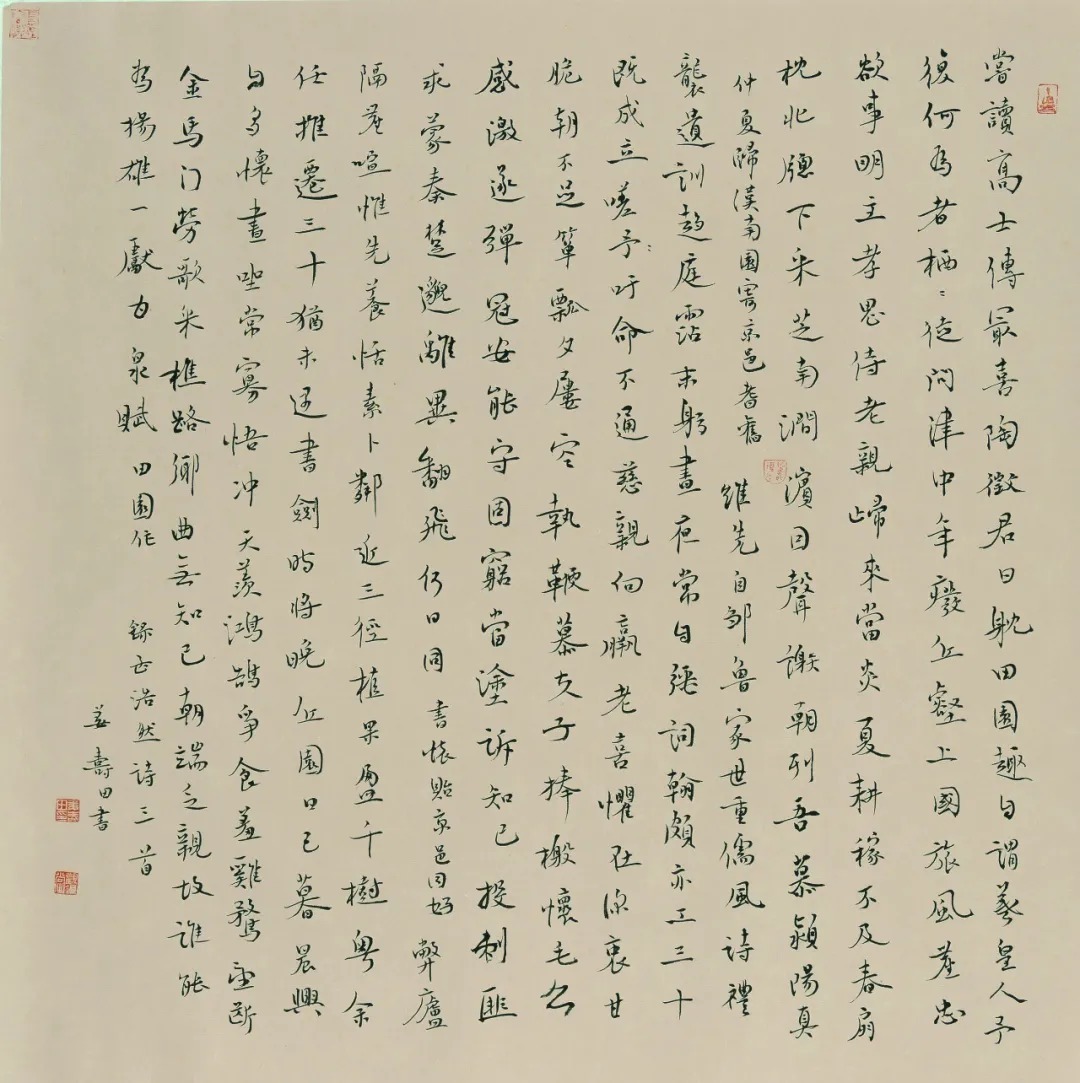 嘗讀高士傳最喜陶徵君日耽田園趣自謂羲皇人予
復何為者栖〻徒問津中年廢丘壑上國旅風塵忠
欲事明主孝思侍老親歸來當炎夏耕稼不及春扇
枕北牕下采芝南澗濱因聲謝朝列吾慕潁陽真
仲夏歸漢南園寄京邑耆舊 維先自鄒魯家世重儒風詩禮
襲遺訓趨庭霑末躬晝夜常自强詞翰頗亦工三十
既成立嗟予〻吁命不通慈親向羸老喜懼在深衷甘
脆朝不足簞瓢夕屢空執鞭慕夫子捧檄懷毛公
感激遂彈冠安能守固窮當塗訴知己投刺匪
求蒙秦楚邈離異翻飛何日同 書懷貽京邑同好 弊廬
隔塵喧惟先養恬素卜鄰近三徑植果盈千樹粤余
任推遷三十猶未遇書劍時將晚丘園日已暮晨興
自多懷晝坐常寡悟冲天羨鴻鵠爭食羞雞鶩望斷
金馬门勞歌采樵路鄉曲無知己朝端乏親故誰能
為揚雄一獻甘泉賦 田園作 錄孟浩然詩三首
姜壽田書